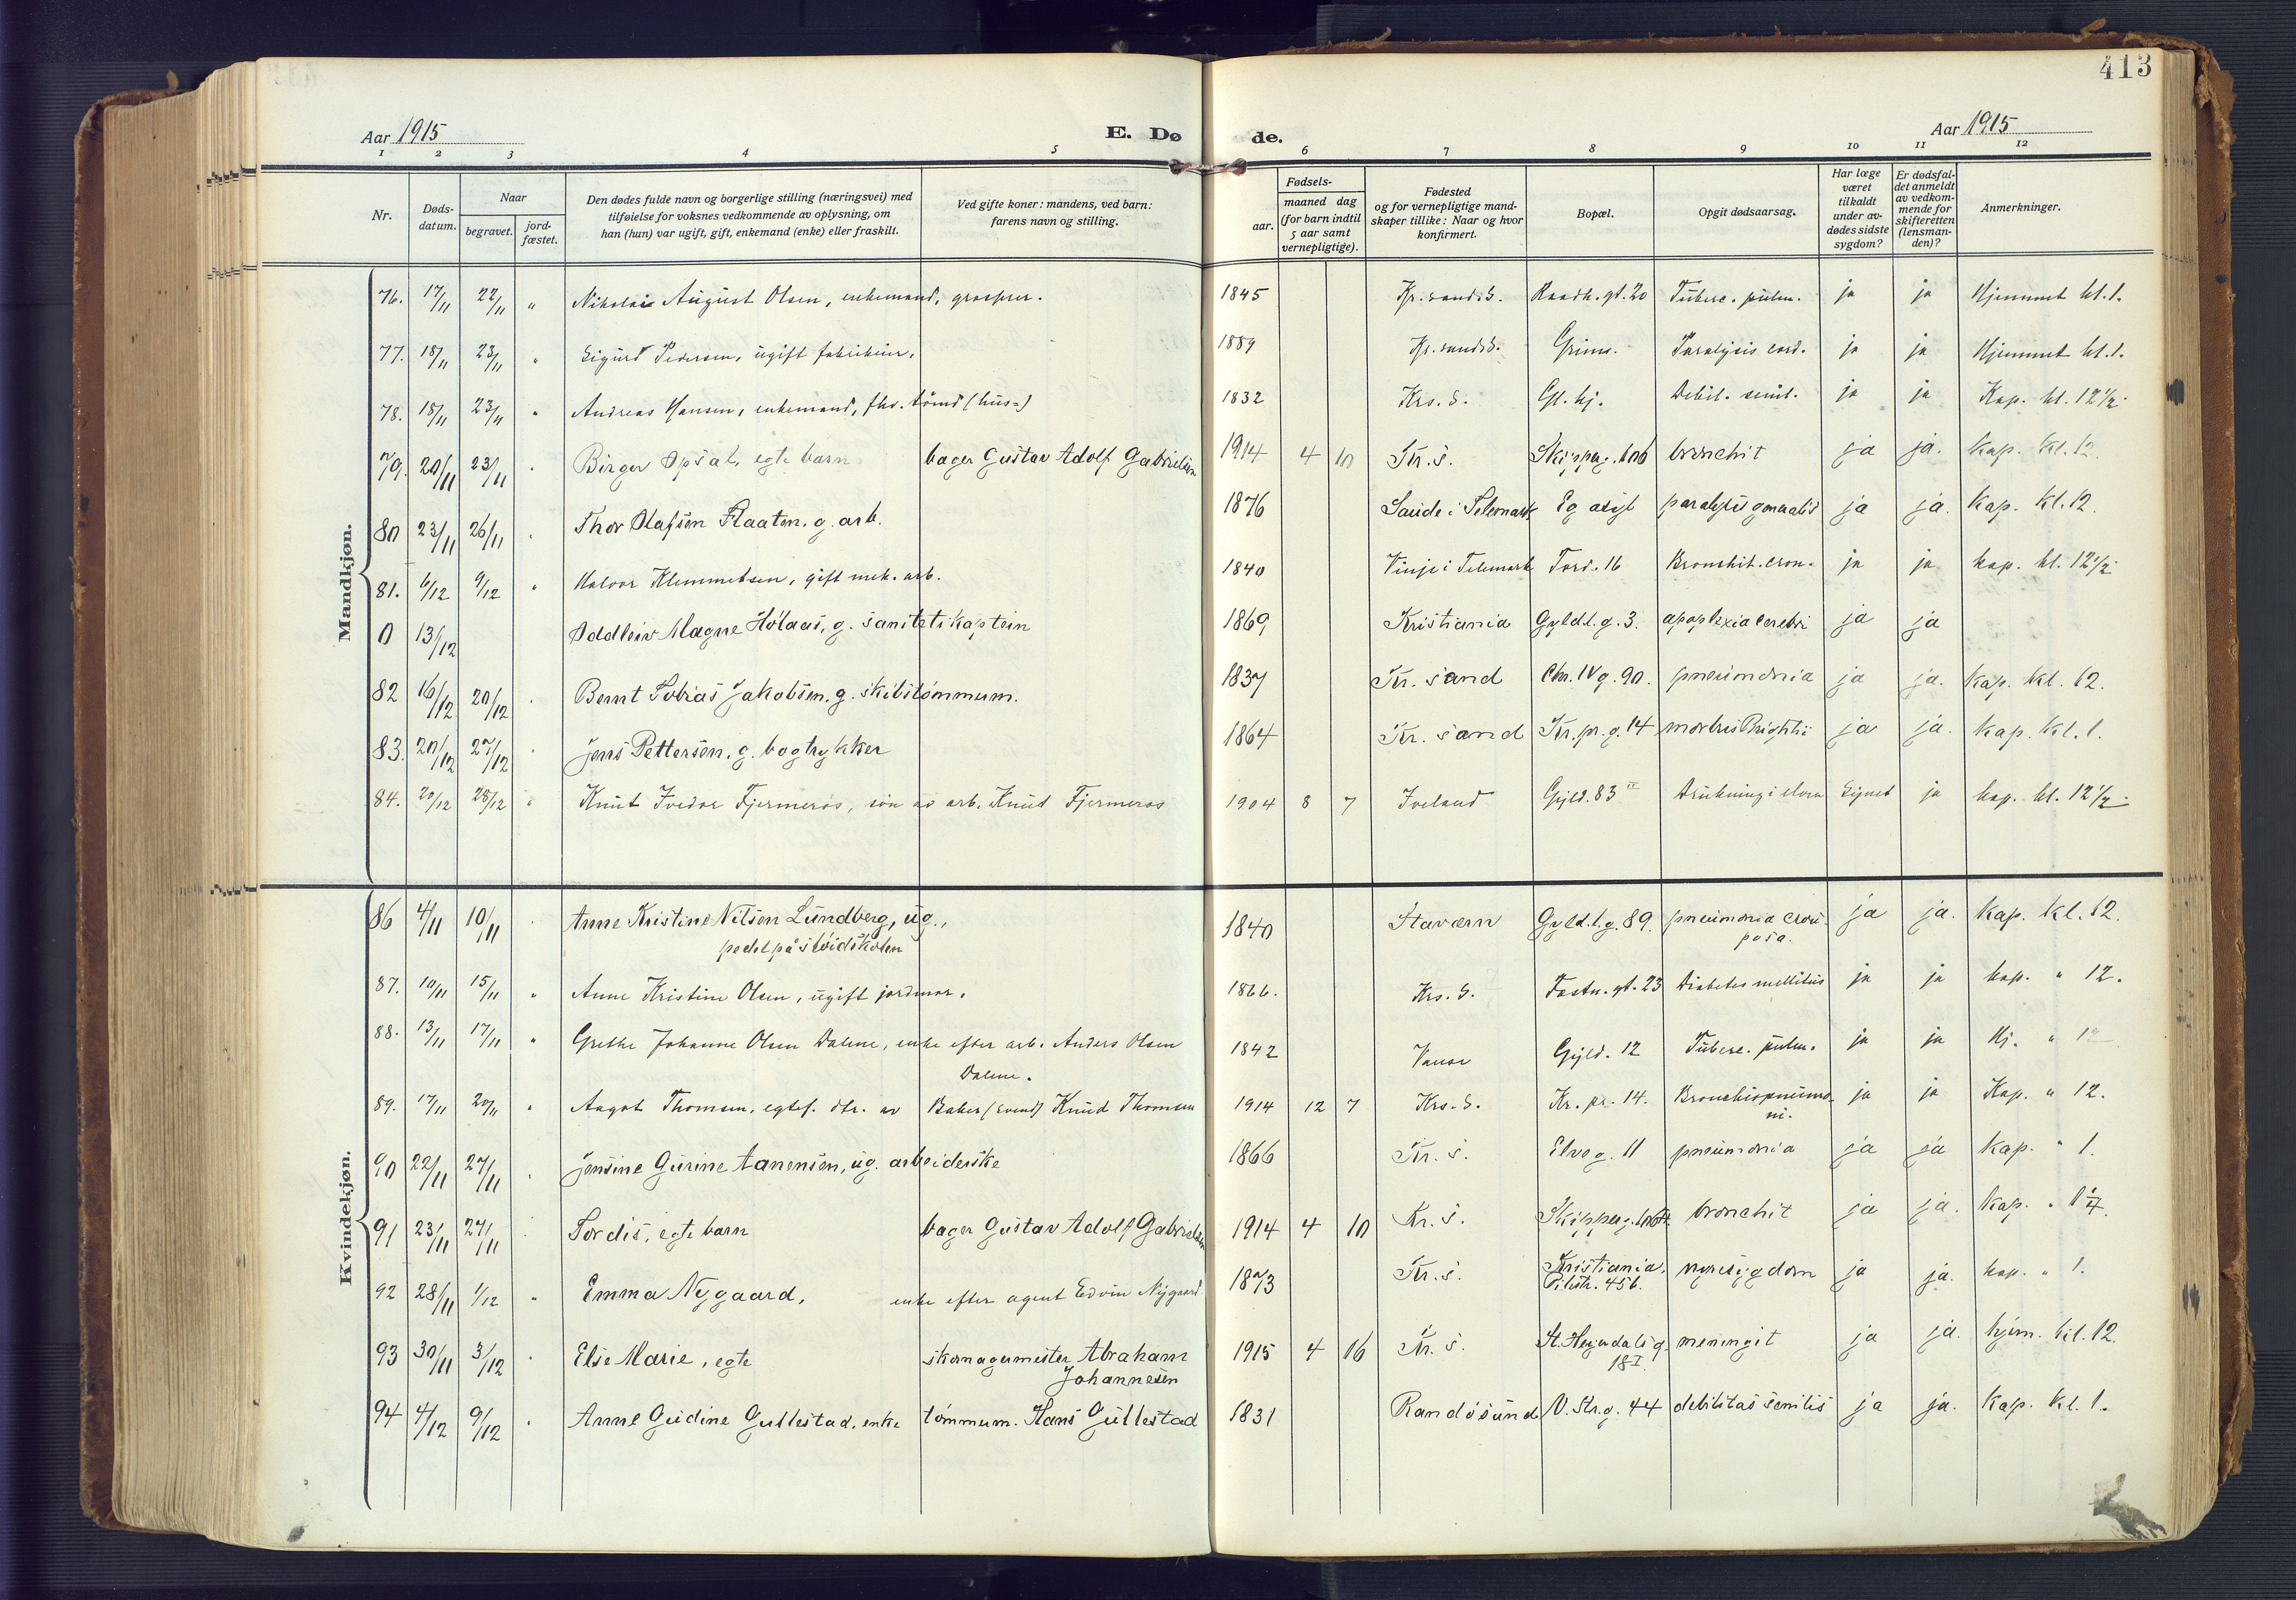 413
Aar 1915 E. Dø de. Aar 1915
1 2 3 4 5 6 7 8 9 10 11 12
Nr. Døds-datum. Naar begravet. jord-fæstet. Den dødes fulde navn og borgerlige stilling (næringsvei) med tilføielse for voksnes vedkommende av oplysning, om han (hun) var ugift, gift, enkemand (enke) eller fraskilt. Ved gifte koner: mandens, ved barn: farens navn og stilling. Fødsels- aar. maaned dag (for barn indtil 5 aar samt vernepligtige). Fødested og for vernepligtige mandskaper tillike: Naar og hvor konfirmert. Bopæl. Opgit dødsaarsag. Har læge været tilkaldt under avdødes sidste sygdom? Er dødsfaldet anmeldt av vedkommende for skifteretten (lensmanden)? Anmerkninger.
Mandkjøn.
76. 17/11 22/11 " Nikolai August Olsen, enkemand, grosserer. 1845 Kr.sand S. Raadh. gt. 20 Tuberc. pulm. ja ja Hjemmet kl. 1.
77. 18/11 23/11 " Sigurd Pedersen, ugift 1889 Kr.sand S. Grim. Paralysis cord. ja ja Hjemmet kl. 1.
78. 18/11 23/11 " Andreas Hansen, enkemand, fhv. tømd (hus=) 1832 Krs. S. Gl. hj. Debil. senil. ja ja Kap. kl. 12 1/2
79. 20/11 23/11 " Birger Opsal, egte barn bager Gustav Adolf Gabrielsen 1914 4 10 Kr. s. Skipperg. bronchit ja ja. Kap. Kl. 12.
80 23/11 26/11 " Thor Olafsen Flaaten. g. arb. 1876 Saude i Telemark Eg asyl paralysis generalis ja ja. Kap. Kl. 12.
81. 6/12 9/12 " Halvor Klemmetsen, gift mek. arb. 1840 Vinje i Telemark Tord. 16 Bronchit. cron. ja ja kap. kl. 12 1/2
0 13/12 Oddleiv Magne Holaas, g. sanitetskaptein 1869 Kristiania Gyldl. g. 3. apoplexia cerebri ja ja
82 16/12 20/12 " Bernt Tobias Jakobsen. g. skibstømmerm. 1837 Kr. sand Chr. IV g. 90. pneumonia ja ja. Kap. Kl. 12.
83. 20/12 27/12 " Jens Pettersen, g. bogtrykker 1864 Kr. sand Kr. pr. g. 14 morbus Brightii ja ja. Kap. Kl. 1.
84. 20/12 28/12 " Knut Ivedor Fjermeros, søn av arb. Knud Fjermeros 1904 8 7 Iveland Gyld. 83 II Drukning i elven ja kap. kl. 12 1/2
Kvindekjøn.
86 4/11 10/11 " Anne Kristine Nilsen Lundberg, ug., 1840 Staværn Gyld.l.g. 89. pneumonia crou-
pedel på sløidskolen posa.
87. 10/11 15/11 " Anne Kristine Olsen, ugift jordmor. 1866. Krs. S. Festn. gt. 23 Diabetes mellitus ja ja kap. " 12.
88. 13/11 17/11 " Grethe Johanne Olsen Dalene, enke efter arb. Anders Olsen 1842 Vanse Gyld. 12 Tuberc. pulm. ja ja Hj. " 12
Dalene.
89. 17/11 20/11 " Aagot Thomsen, egtef. dtr. av Baker (Svend) Knud Thomsen 1914 12 7 Krs. S. Kr. pr. 14. Bronchiopneumo- ja ja Kap. " 12.
ni.
90 22/11 27/11 " Jensine Gurine Aanensen, ug. arbeiderske 1866 Kr. s. Elveg. 11 pneumonia ja ja Kap. " 1.
91 23/11 27/11 " Tordis, egte barn bager Gustav Adolf Gabrielsen 1914 4 10 Kr. s. Skipperg. bronchit ja ja. Kap. "
92 28/11 1/12 " Emma Nygaard, enke efter agent Edvin Nygaard. 1873 Kr. s. Kristiania. Pilestr. 45b. nyresygdom ja ja. kap. " 1.
93 30/11 3/12 " Else Marie, egte skomagermester Abraham 1915 4 16 Kr. s. St. Hejrdalsg. meningit ja ja. hjem. Kl. 12.
Johannesen 18 I.
94 4/12 9/12 " Anne Gudine Gullestad, enke tømmerm. Hans Gullestad 1831 Randøsund V. Str. g. 44 debilitas senilis ja ja. Kap. Kl. 1.